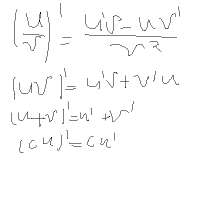 (u/v)' = (u'v - uv')/v²
[uv]' = u'v + v'u
[u+v]' = u' + v'
(cu)' = cu'